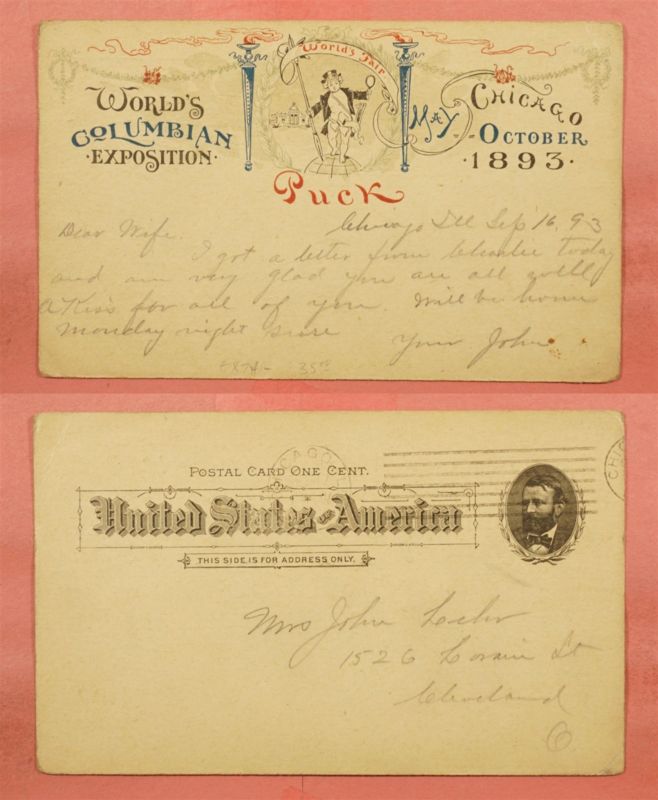 World's Fair
WORLD'S
COLUMBIAN
·EXPOSITION·
MAY - CHICAGO
OCTOBER
·1893·
PUCK
Chicago Ill Sep 16, 93
Dear Wife.
I got a letter from Charlie today
and am very glad you are all well
A Kiss for all of you. Will be home
Monday night sure
Your John
35
CAGO
CHIC
POSTAL CARD ONE CENT.
United States of America
THIS SIDE IS FOR ADDRESS ONLY.
Mrs John Lehr
1526 Lorain St
Cleveland
O.